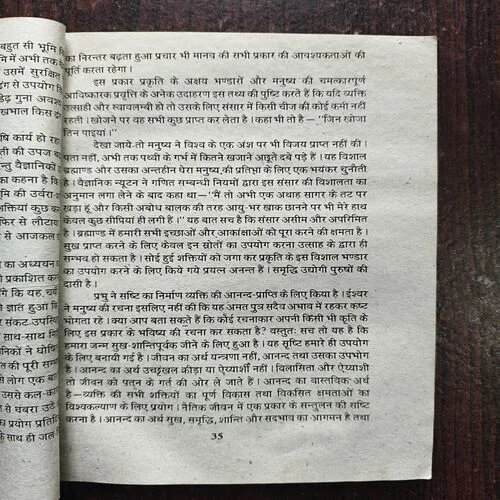 बहुत सी भूमि
में अभी तक
उसमें सुरक्षित
से उपयोग
डेढ़ गुना अवश
खभाल किस
षि कार्य हो रहा
ती की उपज ब
न्तु वैज्ञानिकों
का कहना है कि
भूमि की उर्वरा
क्तियां कुछ क
फिर से लौटाय
से आजकल
का अध्ययन
प्रकाशित कर
कि यह, चर्ब
ज्ञात हुआ कि
संकट-उपस्थि
साथ-साथ
निकों ने घोषि
की पूरी सम्भ
लोग एक बा
उससे कल-का
से घबरा उटे
का प्रयोग प्रति
के साथ ही जल
का निरन्तर बढ़ता हुआ प्रचार भी मानव की सभी प्रकार की आवश्यकताओं की
पूर्ति करता रहेगा।
इस प्रकार प्रकृति के अक्षय भण्डारों और मनुष्य की चमत्कारपूर्ण
आविष्कारक प्रवृत्ति के अनेक उदाहरण इस तथ्य की पुष्टि करते हैं कि यदि व्यक्ति
उत्साही और स्वावलम्बी हो तो उसके लिए संसार में किसी चीज की कोई कमी नहीं
रहती। खोजने पर वह सभी कुछ प्राप्त कर लेता है। कहा भी तो है—"जिन खोजा
तिन पाइयां।"
देखा जाये-तो मनुष्य ने विश्व के एक अंश पर भी विजय प्राप्त नहीं की।
पता नहीं, अभी तक पृथ्वी के गर्भ में कितने खजाने अछूते दबे पड़े हैं। यह विशाल
ब्रह्माण्ड और उसका अन्तहीन घेरा मनुष्य की प्रतिभा के लिए एक भयंकर चुनौती
है। वैज्ञानिक न्यूटन ने गणित सम्बन्धी नियमों द्वारा इस संसार की विशालता का
अनुमान लगा लेने के बाद कहा था—"मैं तो अभी एक अथाह सागर के तट पर
खड़ा हूं और किसी अबोध बालक की तरह आयु-भर खाक छानने पर भी मेरे हाथ
केवल कुछ सीपियां ही लगी हैं।" यह बात सच है कि संसार असीम और अपरिमित
है। ब्रह्माण्ड में हमारी सभी इच्छाओं और आकांक्षाओं को पूरा करने की क्षमता है।
सुख प्राप्त करने के लिए केवल इन स्रोतों का उपयोग करना उत्साह के द्वारा ही
सम्भव हो सकता है। सोई हुई शक्तियों को जगा कर प्रकृति के इस विशाल भण्डार
का उपयोग करने के लिए किये गये प्रयत्न अनन्त हैं। समृद्धि उद्योगी पुरुषों की
दासी है।
प्रभु ने सष्टि का निर्माण व्यक्ति की आनन्द-प्राप्ति के लिए किया है। ईश्वर
ने मनुष्य की रचना इसलिए नहीं की कि यह अमत पुत्र सदैव अभाव में रहकर कष्ट
भोगता रहे। क्या आप बता सकते हैं कि कोई रचनाकार अपनी किसी भी कृति के
लिए इस प्रकार के भविष्य की रचना कर सकता है? वस्तुतः सच तो यह है कि
हमारा जन्म सुख-शान्तिपूर्वक जीने के लिए हुआ है। यह सृष्टि हमारे ही उपयोग
के लिए बनायी गई है। जीवन का अर्थ यन्त्रणा नहीं, आनन्द तथा उसका उपभोग
है। आनन्द का अर्थ उच्छृंखल क्रीड़ा या ऐय्यार्शी नहीं। विलासिता और ऐय्याशी
तो जीवन को पतन के गर्त की ओर ले जाते हैं। आनन्द का वास्तविक अर्थ
है—व्यक्ति की सभी शक्तियों का पूर्ण विकास तथा विकसित क्षमताओं का
विश्वकल्याण के लिए प्रयोग। नैतिक जीवन में एक प्रकार के सन्तुलन की सष्टि
करना है। आनन्द का अर्थ सुख, समृद्धि, शान्ति और सदभाव का आगमन है तथा
35